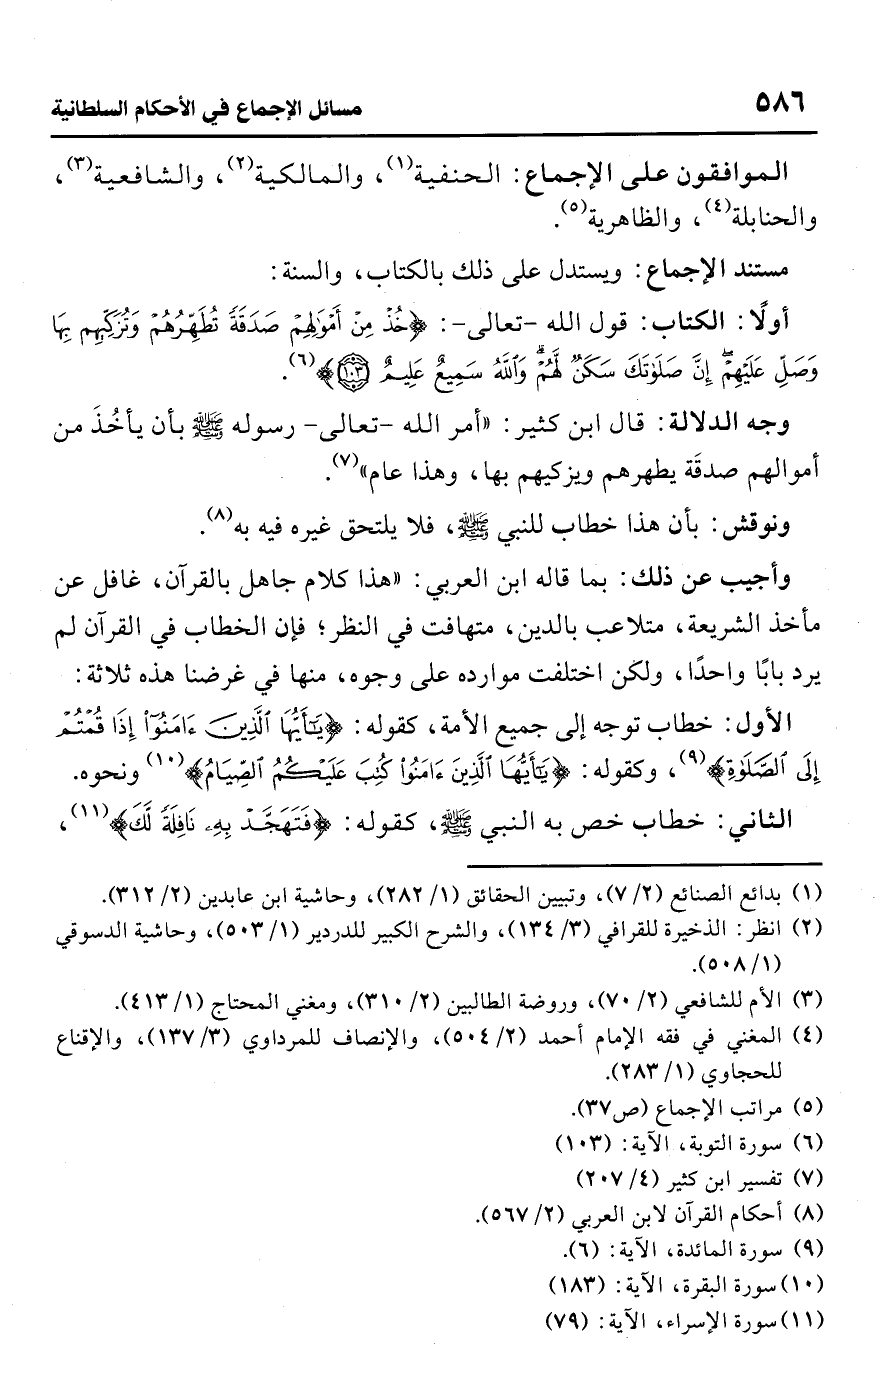 ٥٨٦ مسائل الإجماع في الأحكام السلطانية
الموافقون على الإجماع: الحنفية(١)، والمالكية(٢)، والشافعية(٣)،
والحنابلة(٤)، والظاهرية(٥).
مستند الإجماع: ويستدل على ذلك بالكتاب، والسنة:
أولًا: الكتاب: قول الله -تعالى-: ﴿خُذْ مِنْ أَمْوَٰلِهِمْ صَدَقَةً تُطَهِّرُهُمْ وَتُزَكِّيهِم بِهَا
وَصَلِّ عَلَيْهِمْ ۖ إِنَّ صَلَوٰتَكَ سَكَنٌ لَّهُمْ ۗ وَٱللَّهُ سَمِيعٌ عَلِيمٌ ١٠٣﴾(٦).
وجه الدلالة: قال ابن كثير: «أمر الله -تعالى- رسوله ﷺ بأن يأخُذَ من
أموالهم صدقَة يطهرهم ويزكيهم بها، وهذا عام»(٧).
ونوقش: بأن هذا خطاب للنبي ﷺ، فلا يلتحق غيره فيه به(٨).
وأجيب عن ذلك: بما قاله ابن العربي: «هذا كلام جاهل بالقرآن، غافل عن
مأخذ الشريعة، متلاعب بالدين، متهافت في النظر؛ فإن الخطاب في القرآن لم
يرد بابًا واحدًا، ولكن اختلفت موارده على وجوه، منها في غرضنا هذه ثلاثة:
الأول: خطاب توجه إلى جميع الأمة، كقوله: ﴿يَٰٓأَيُّهَا ٱلَّذِينَ ءَامَنُوٓا۟ إِذَا قُمْتُمْ
إِلَى ٱلصَّلَوٰةِ﴾(٩)، وكقوله: ﴿يَٰٓأَيُّهَا ٱلَّذِينَ ءَامَنُوا۟ كُتِبَ عَلَيْكُمُ ٱلصِّيَامُ﴾(١٠) ونحوه.
الثاني: خطاب خص به النبي ﷺ، كقوله: ﴿فَتَهَجَّدْ بِهِۦ نَافِلَةً لَّكَ﴾(١١)،
(١) بدائع الصنائع (٢/ ٧)، وتبيين الحقائق (١/ ٢٨٢)، وحاشية ابن عابدين (٢/ ٣١٢).
(٢) انظر: الذخيرة للقرافي (٣/ ١٣٤)، والشرح الكبير للدردير (١/ ٥٠٣)، وحاشية الدسوقي
(١/ ٥٠٨).
(٣) الأم للشافعي (٢/ ٧٠)، وروضة الطالبين (٢/ ٣١٠)، ومغني المحتاج (١/ ٤١٣).
(٤) المغني في فقه الإمام أحمد (٢/ ٥٠٤)، والإنصاف للمرداوي (٣/ ١٣٧)، والإقناع
للحجاوي (١/ ٢٨٣).
(٥) مراتب الإجماع (ص٣٧).
(٦) سورة التوبة، الآية: (١٠٣)
(٧) تفسير ابن كثير (٤/ ٢٠٧)
(٨) أحكام القرآن لابن العربي (٢/ ٥٦٧).
(٩) سورة المائدة، الآية: (٦).
(١٠) سورة البقرة، الآية: (١٨٣)
(١١) سورة الإسراء، الآية: (٧٩)